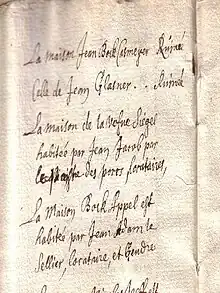 La maison Jean Bock Ruiné
Celle de Jean Glasner . . Ruiné
La maison de la vefue Sieges
habitée par Jean Jacob par
des ports locataires,
La Maison Bock Appel est
habitée par Jean Adam le
Sellier, locataire, et Gendre